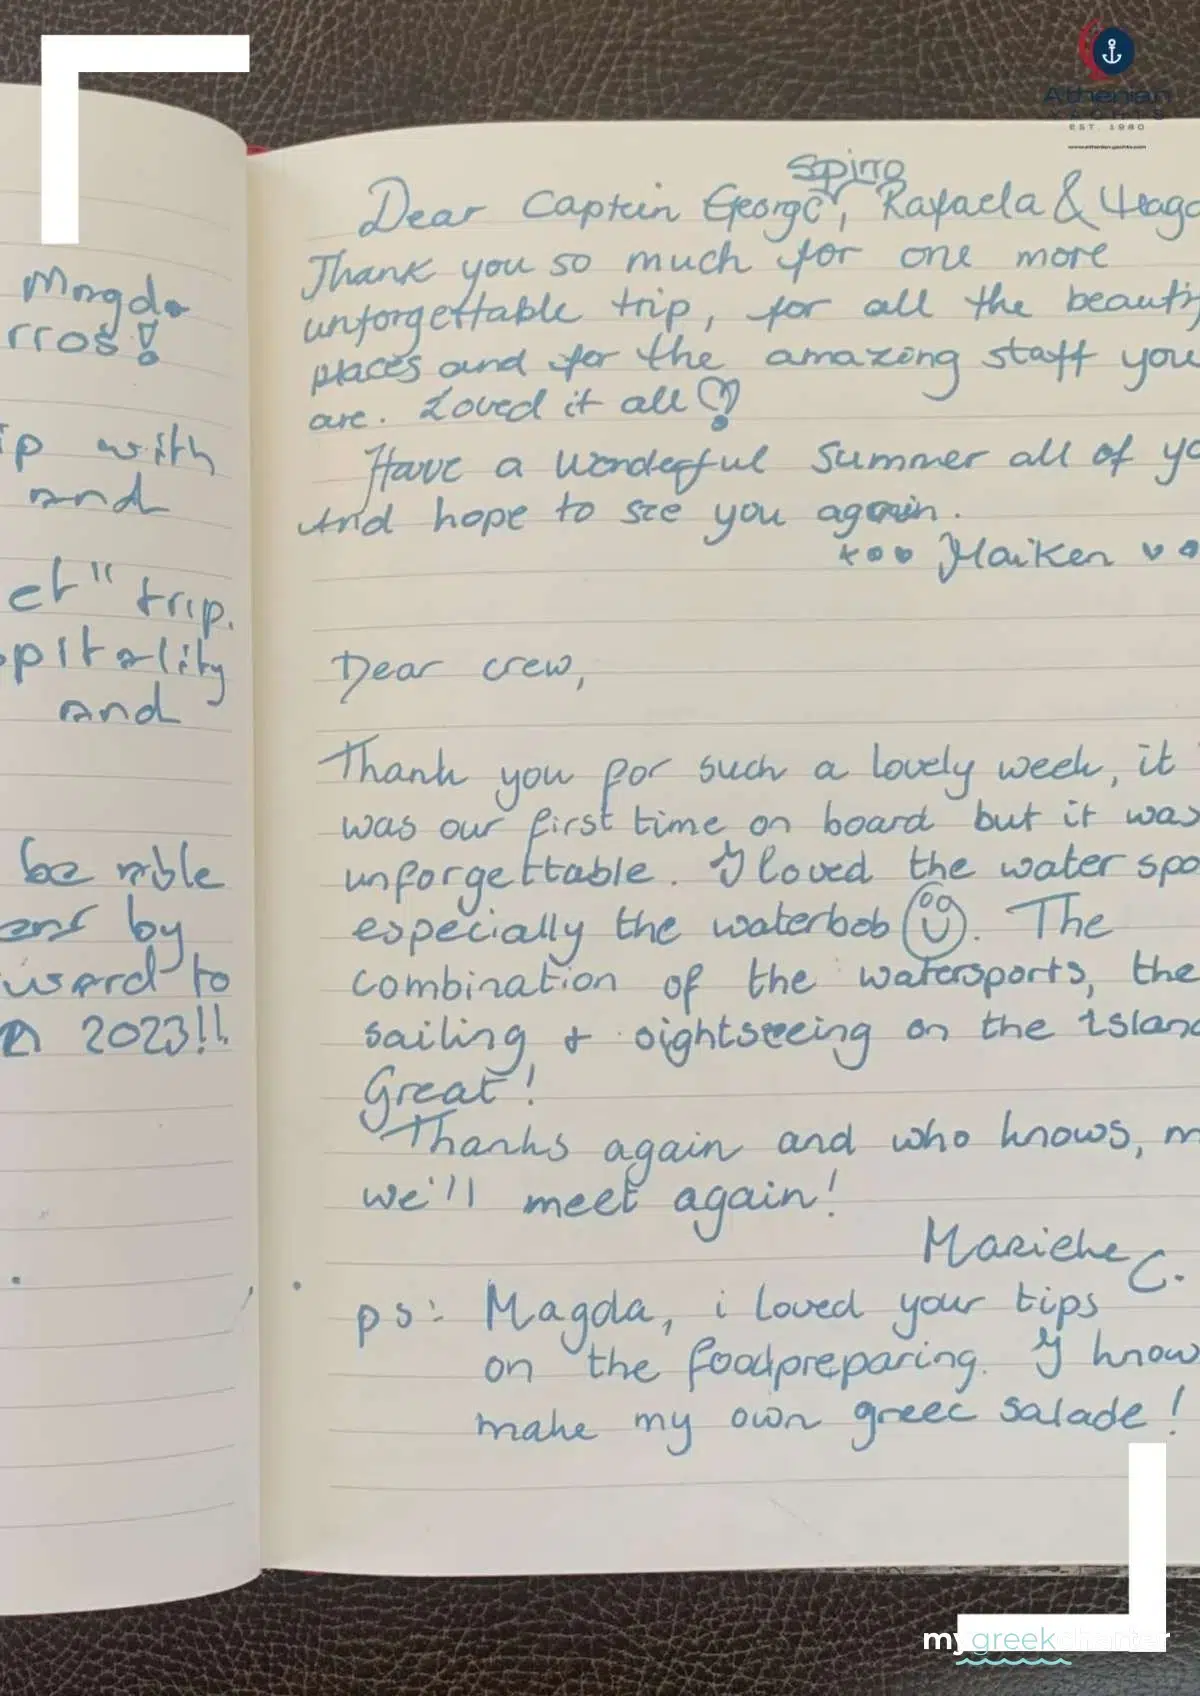 Athenian
YACHTS
EST. 1980
www.athenian-yachts.com
Magda
rros!
ip with
and
et" trip.
spitality
and
be able
by
ward to
2023!!
Spiro
Dear Captein George, Rafaela &
Thank you so much for one more
unforgettable trip, for all the beauti
places and for the amazing staff you
are. Loved it all
Have a wonderful Summer all of yo
And hope to see you again.
Maiken
Dear crew,
Thank you for such a lovely week, it
was our first time on board but it was
unforgettable. I loved the water spo
especially the waterbob. The
combination of the watersports, the
sailing + sightseeing on the islan
Great!
Thanks again and who knows, m
we'll meet again!
Marieke C.
ps: Magda, i loved your tips
on the foodpreparing. I know
make my own greec salade!
mygreekcharter